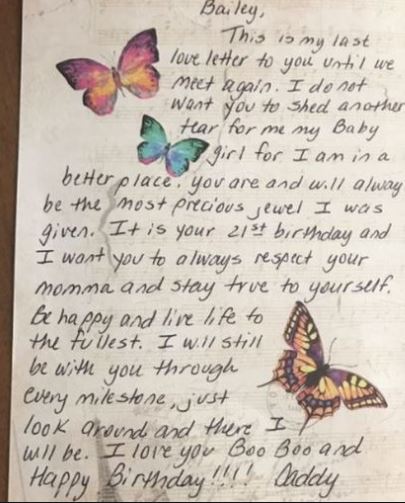 Bailey,
This is my last
love letter to you until we
meet again. I do not
want you to shed another
tear for me my Baby
girl for I am in a
better place. you are and will alway
be the most precious jewel I was
given. It is your 21st birthday and
I want you to always respect your
momma and stay true to yourself.
Be happy and live life to
the fullest. I will still
be with you through
every milestone, just
look around and there I
will be. I love you Boo Boo and
Happy Birthday!!!! Daddy